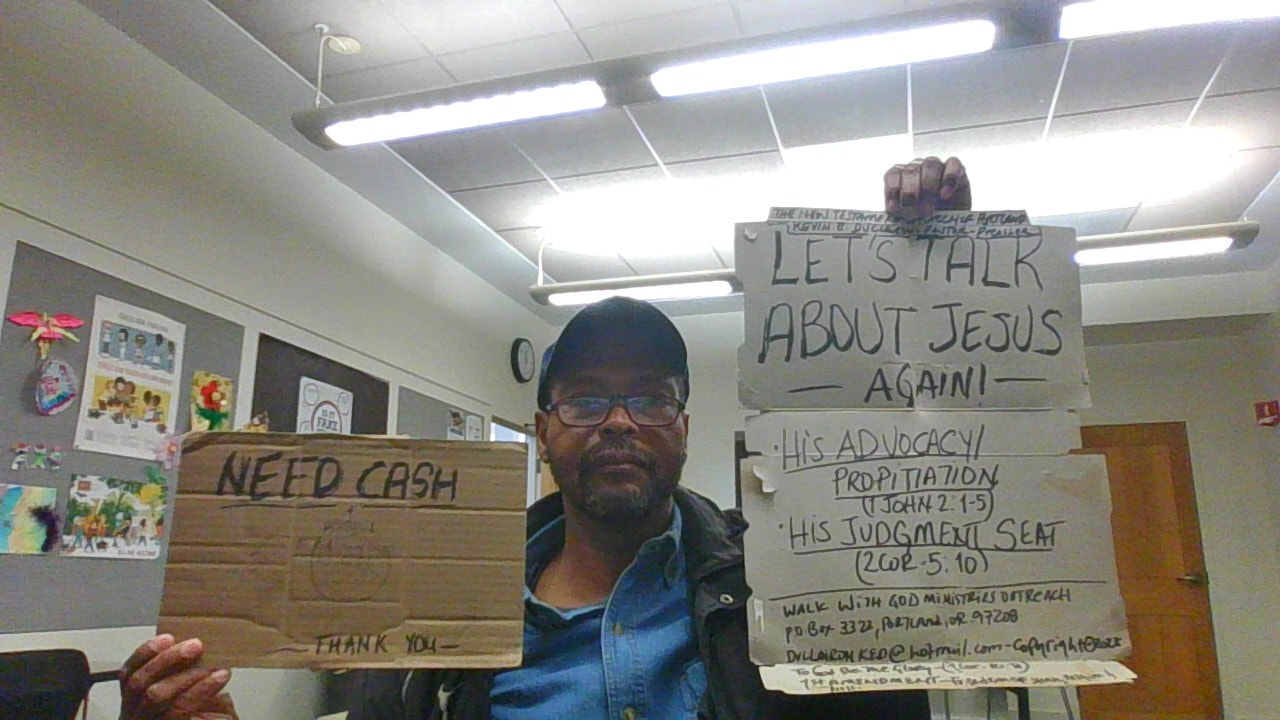 NEED CASH
— THANK YOU —
THE NEW TESTAMENT CHURCH OF PORTLAND
KEVIN E
PASTOR - Preacher
LET'S TALK
ABOUT JESUS
— AGAIN! —
· HIS ADVOCACY/
PROPITIATION
(1 JOHN 2:1-5)
· HIS JUDGMENT SEAT
(2 COR-5:10)
WALK WITH GOD MINISTRIES OUTREACH
P.O. BOX 3323, PORTLAND, OR 97208
@hotmail.com-Copyright©2023
TO GOD BE THE GLORY
1ST AMENDMENT